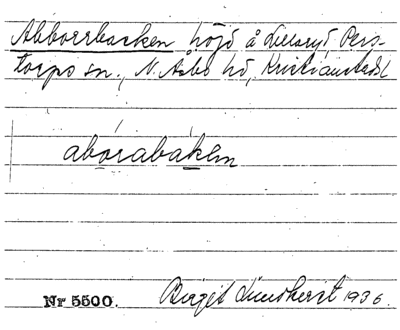 Abborrbacken höjd å Lillaryd, Pers-
torps sn., N. Åsbo hd, Kristianstads l
abórabákan
Nr 5500. Birgit Lundkvist 1936.